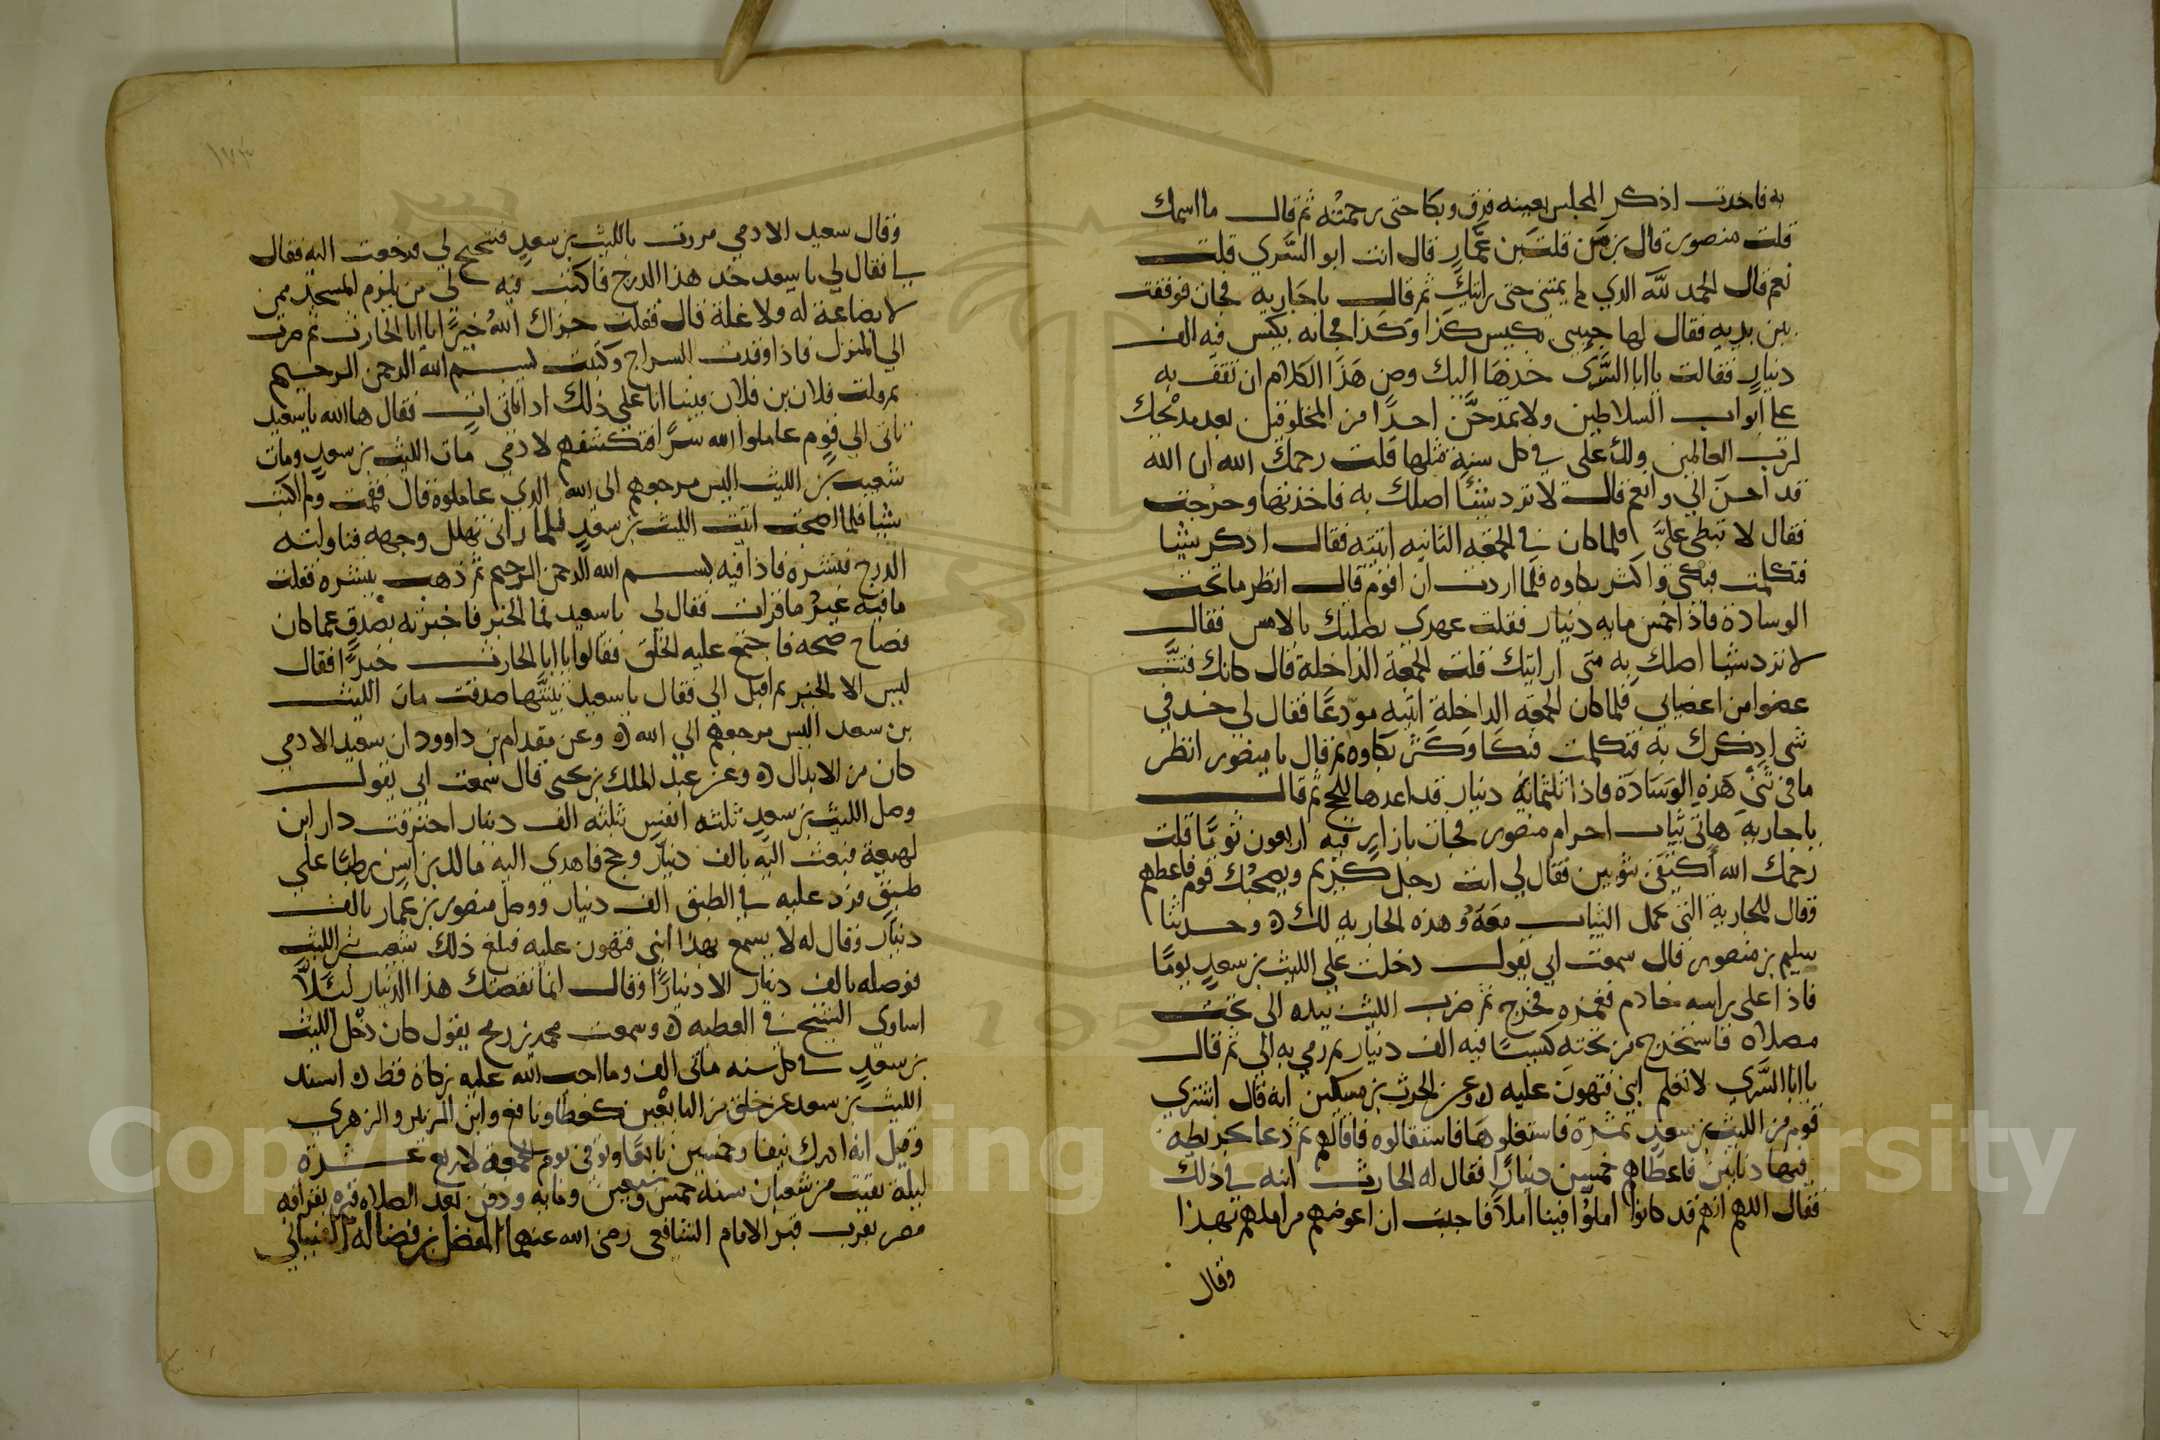 به فاخذت اذكر المجلس بعينه فرق وبكا حتى رحمته ثم قال ما اسمك
قلت منصور قال بن من قلت بن عمار قال انت ابو السري قلت
نعم قال الحمد لله الذي لم يمتني حتى رايتك ثم قال يا جارية فجات فوقفت
بين يديه فقال لها جيبى بكيس كذا وكذا فجاته بكيس فيه الف
دينار فقالت يا ابا السرى خذها اليك وصن هذا الكلام ان تقف به
على ابواب السلاطين ولا تمدحن احدا من المخلوقين بعد مدحك
لرب العالمين ولك على في كل سنة مثلها قلت رحمك الله ان الله
قد احسن الي وانعم قال لا ترد شيئا اصلك به فاخذتها وخرجت
فقال لا تبطى علي فلما كان في الجمعة الثانيه اتيته فقال اذكر شيا
فتكلمت فبكى واكثر بكاوه فلما اردت ان اقوم قال انظر ما تحت
الوسادة فاذا خمس مايه دينار فقلت عهدي بصلتك بالامس فقال
لا ترد شيا اصلك به متى اراك قلت الجمعة الداخلة قال كانك فتت
عضوا من اعضاي فلما كان الجمعه الداخلة اتيته مودعا فقال لي خذ في
شى اذكرك به فتكلمت فبكا وكثر بكاوه ثم قال يا منصور انظر
ما في ثني هذه الوسادة فاذا ثلثمائة دينار قد اعدها للحج ثم قال
يا جارية هاتى ثياب احرام منصور فجات بازار فيه اربعون ثوبا قلت
رحمك الله اكتفى بثوبين فقال لي انت رجل كريم ويصحبك قوم فاعطهم
وقال للجارية التى تحمل الثياب معه وهذه الجاريه لك وحدثنا
سليم بن منصور قال سمعت ابي يقول دخلت على الليث بن سعد يوما
فاذا على راسه خادم فغمزه فخرج ثم ضرب الليث بيده الى تحت
مصلاه فاستخرج من تحته كيسا فيه الف دينار ثم رمى به الي ثم قال
يا ابا السري لا تعلم ابني فتهون عليه وعن الحرث بن مسكين انه قال اشترى
قوم من الليث بن سعد ثمرة فاستغلوها فاستقالوه فاقالهم ثم دعا بخريطه
فيها دنانير فاعطاهم خمسين دينارا فقال له الحارث ابنه في ذلك
فقال اللهم انهم قد كانوا املوا فينا املا فاحببت ان اعوضهم من املهم بهذا
وقال
١٧٣
وقال سعيد الادمي مررت بالليث بن سعد فتنحنح لي فرجعت اليه فقال
لي يا سعيد خذ هذا الدرج فاكتب فيه لي من يلزم المسجد ممن
لا بضاعة له ولا غلة قال فقلت جزاك الله خيرا يا ابا الحارث ثم صرت
الي المنزل فاذا اوقدت السراج وكتبت بسم الله الرحمن الرحيم
ثم قلت فلان بن فلان فبينا انا على ذلك اذ اتاني ات فقال ها الله يا سعيد
تاتى الي قوم عاملوا الله سرا فتكشفهم لادمى مات الليث بن سعد ومات
شعيب بن الليث اليس مرجعهم الى الله الذي عاملوه قال فقمت ولم اكتب
شيا فلما اصبحت اتيت الليث بن سعد فلما رانى تهلل وجهه فناولته
الدرج فنشره فاذا فيه بسم الله الرحمن الرحيم ثم ذهب ينشره فقلت
ما فيه غير ما قرات فقال لي يا سعيد فما الخبر فاخبرته بصدق عما كان
فصاح صيحه فاجتمع عليه الخلق فقالوا يا ابا الحارث خيرا فقال
ليس الا الخير ثم اقبل الي فقال يا سعيد تبينتها صدقت مات الليث
بن سعد اليس مرجعهم الي الله وعن مقدام بن داوود ان سعيد الادمي
كان من الابدال وعن عبد الملك بن يحيى قال سمعت ابي يقول
وصل الليث بن سعد ثلثه انفس بثلثه الف دينار احترقت دار ابن
لهيعة فبعث اليه بالف دينار وحج فاهدي اليه مالك بن انس رطبا على
طبق فرد عليه في الطبق الف دينار ووصل منصور بن عمار بالف
دينار وقال له لا يسمع بهذا ابنى فتهون عليه فبلغ ذلك شعيب بن الليث
فوصله بالف دينار الا دينارا وقال انما نقصتك هذا الدينار لئلا
اساوى الشيخ في العطيه وسمعت محمد بن رمح يقول كان دخل الليث
بن سعد في كل سنه مائى الف وما اوجب الله عليه زكاة قط اسند
الليث بن سعد عن خلق من التابعين كعطا ونافع وابن الزبير والزهري
وقيل انه ادرك نيفا وخمسين تابعا وتوفى يوم الجمعة لاربع عشرة
ليلة بقيت من شعبان سنه خمس وسبعين ومايه ودفن بعد الصلاه قبره بقرافه
مصر بقرب قبر الامام الشافعى رضى الله عنهما المفضل بن فضالة القتباني
Copyright © King Saud University
1957